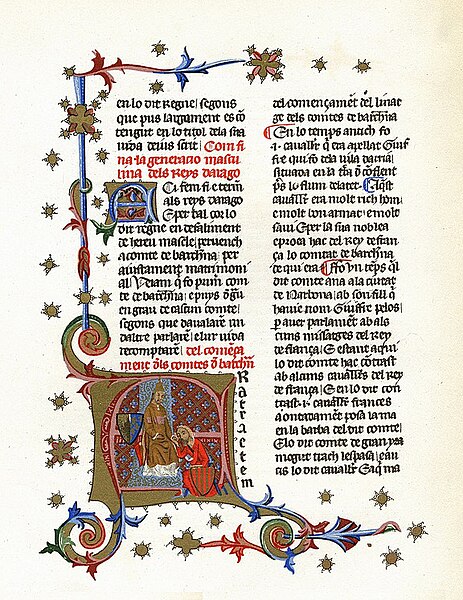 en lo dit Regne segons
que pus largament es cō
tengut en lo titol dela sua
vida deius scrit Com fi
na la generacio mascu
lina dels Reys darago
Aci feni
als reys darago
E per tal cor lo
dit regne en defaliment
de hereu mascle pervench
a comte de barchna per
aiustament matrimoni
al q̄ fo prim com
te de barchna e puys
en grau de casum comte
segons que davalare un
daltre parlare e lur vida
recomptare del comēça
ment dls comtes d barchn
Ractarem
del començamēt del linat
ge dels comtes de barchna
En lo temps antich fo
.i. cavaller q̄ era apellat Guif
fre qui fo dela vila darria
situada en la trā d conflent
p̄s lo flum delatet Aq̄st
cavaller era molt rich hom
e molt bon armat e molt
savi E per la sua noblea
e proea hac del Rey de fran
ça lo comtat de barchna
de qui era E fo .i. tēps q̄l
dit comte ana ala ciutat
de Narbona ab son fill q̄
havie nom Guiffre pelos
p aver parlament ab als
cuns missatges del Rey
de frança E stant aqui
lo dit comte hac cōtrast
ab alcuns cavallers del rey
de frança E en lo dit con
trast .i. cavaller frances
aontadament posa la ma
en la barba del dit comte
E lo dit comte de gran yra
mogut trach lespasa e au
cis lo dit cavaller E aq̄ ma